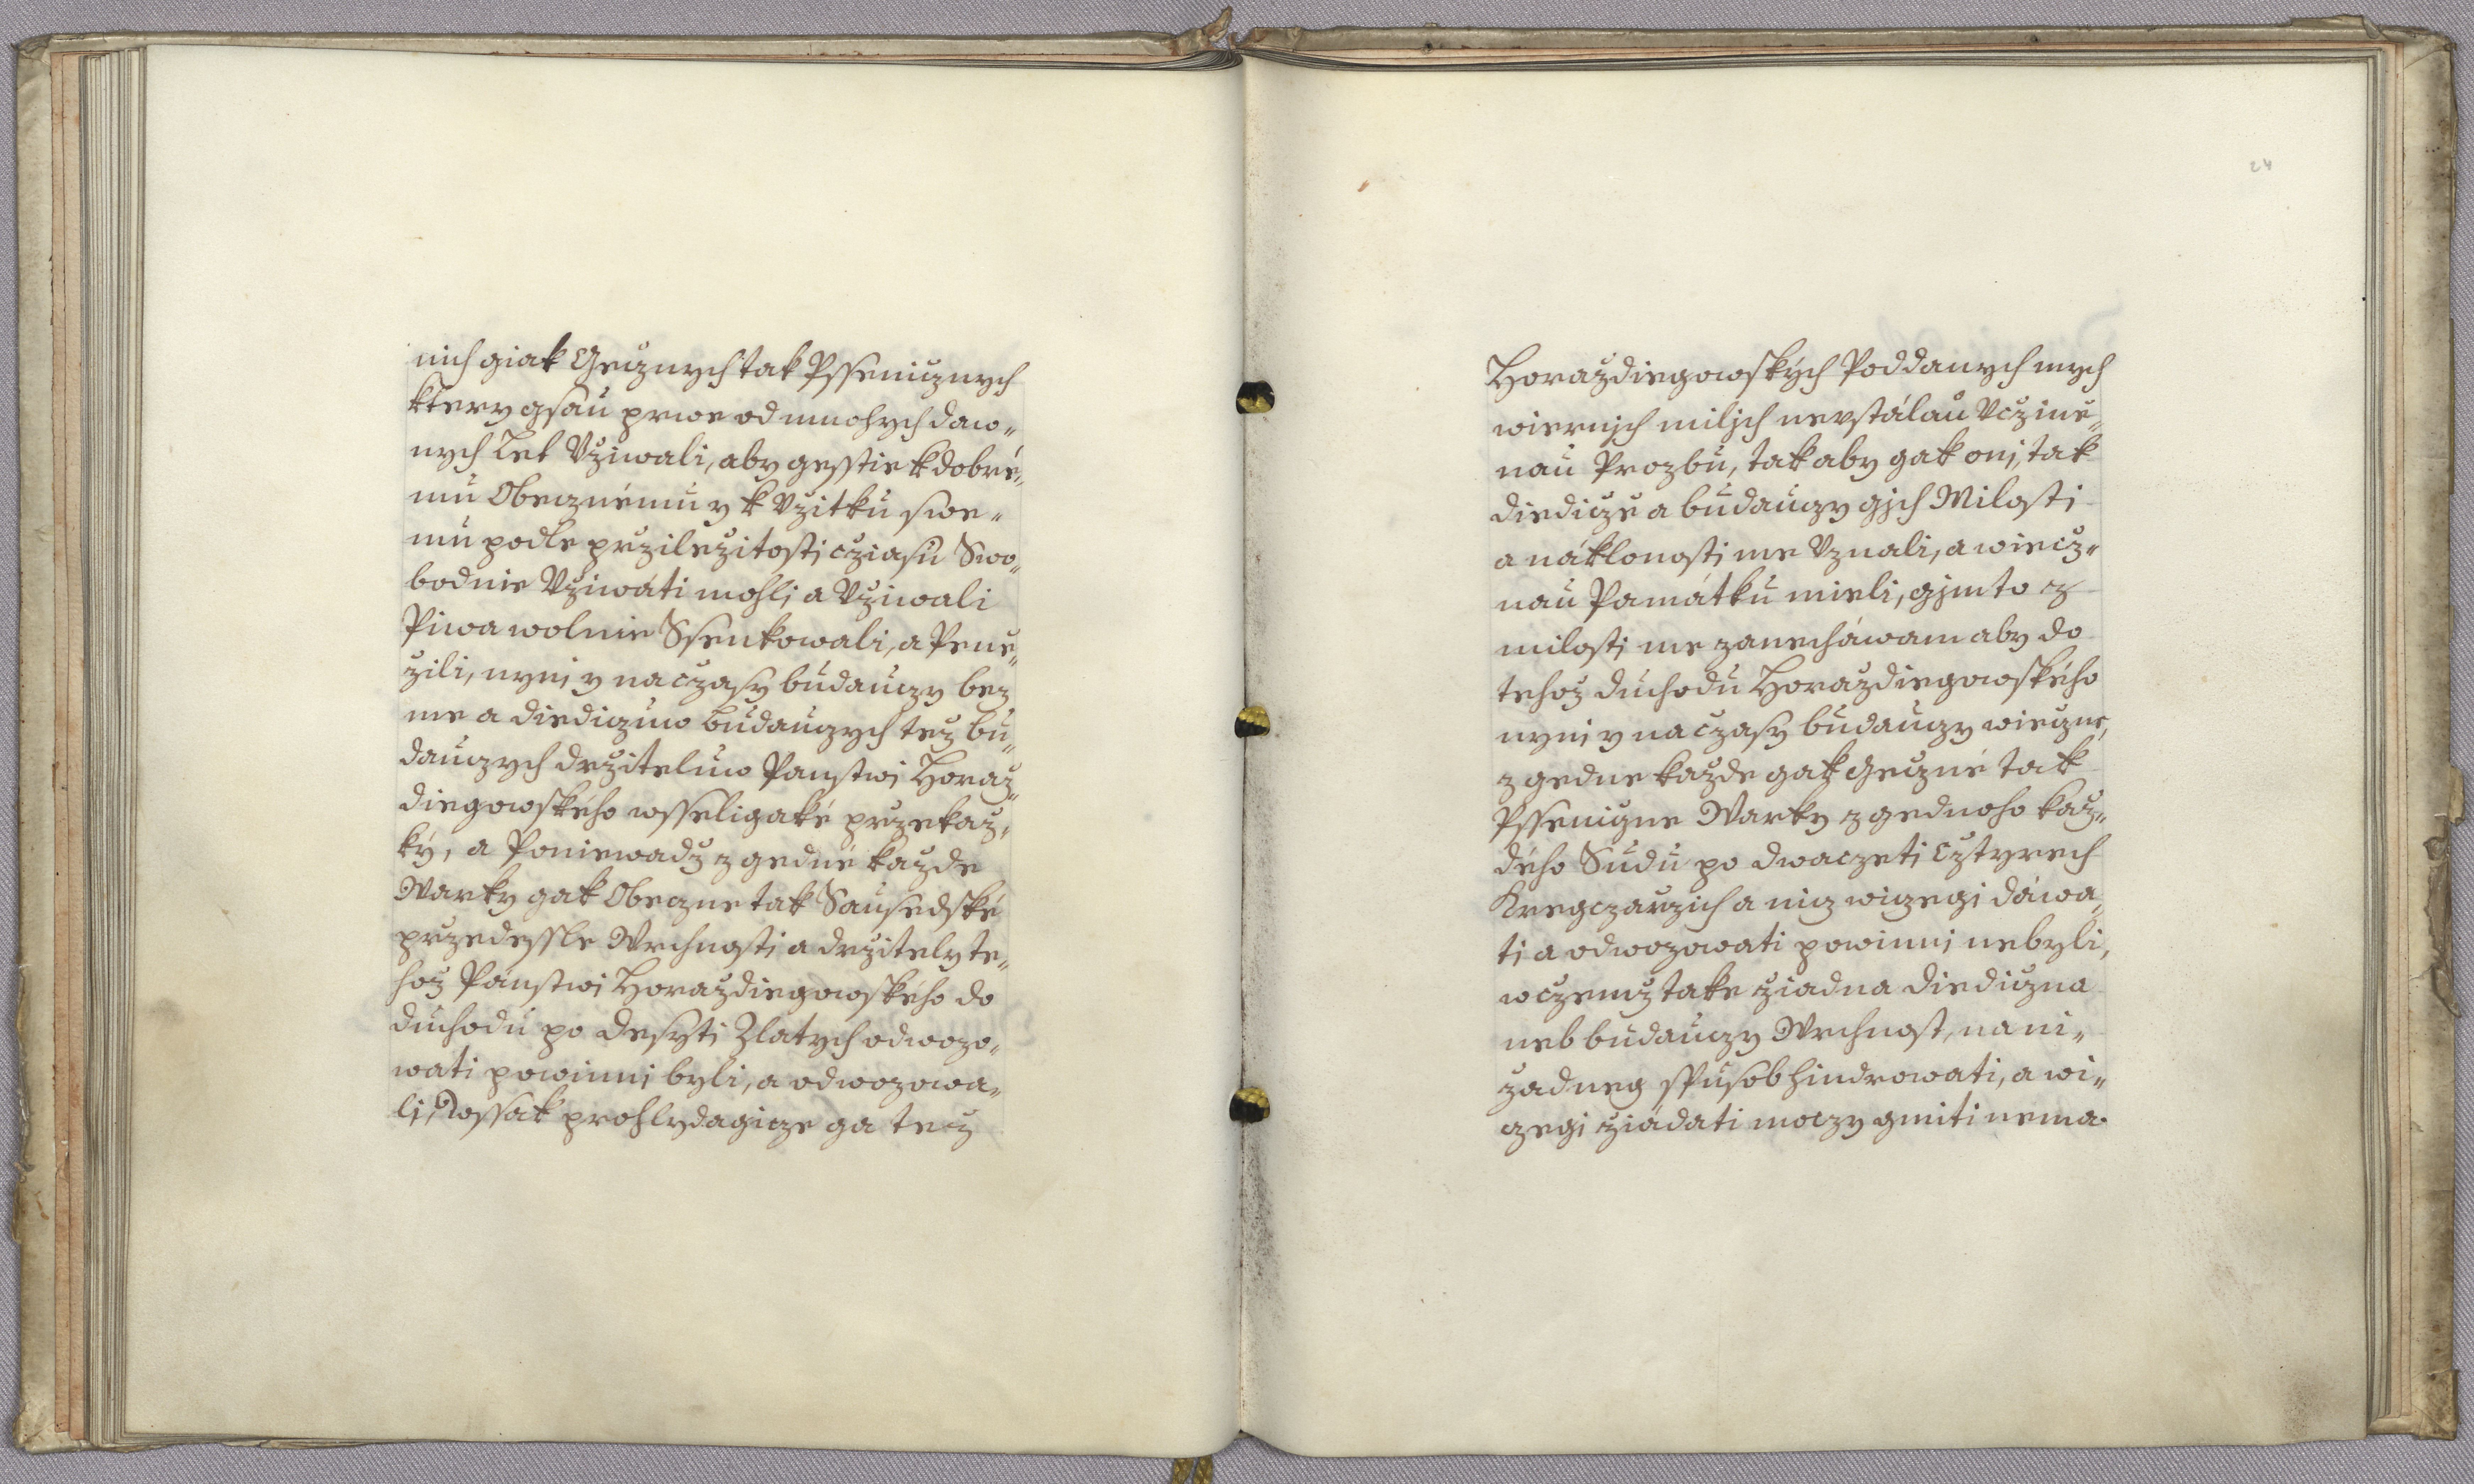 nich giak Gecznych tak Pssenicznych
ktery gsau prwe od mnohych daw„
nych Let Vziwali, aby gesstie k dobré„
mu Obecznému y k Vzitku swe„
mu podle przilezitosti cziasu Swo„
bodnie Vziwáti mohli a Vziwali
Piwa wolnie Ssenkowali, a Pene„
zili, nyni y na czasy budauczy bez
me a diediczuw budauczych tez bu„
dauczych drziteluw Panstwi Horaz„
diegowského wsseligaké przekaz„
ky, a Poniewadz z gedné kazde
Warky gak Obeczne tak Sausedské
przedessle Wrchnosti a drzitely te„
hoz Pánstwi Horazdiegowského do
duchodu po desyti Zlatych odwozo„
wati powinni byli, a odwozowa„
li, wssak prohlydagicze ga tez
24
Horazdiegowských Poddanych mych
wiernjch miljch neustálau Vczine„
nau Prozbu, tak aby gak oni, tak
diedicze a budauczy gjch Milosti
a náklonosti me Vznali, a wiecz„
nau Památku mieli, gjmto z
milosti me zanecháwam aby do
tehoz duchodu Horazdiegowského
nyni y na czasy budauczy wieczne,
z gedne kazde gak Geczné tak
Psseniczne Warky z gednoho kaz„
dého Sudu po dwaczeti Cztyrech
Kregczarzich a nicz wiczegi dáwa„
ti a odwozowati powinni nebyli,
w czemz take ziadna diediczna
neb budauczy Wrchnost, na ni„
zadneg spusob hindrowati, a wi„
czegi ziádati moczy gmiti nema